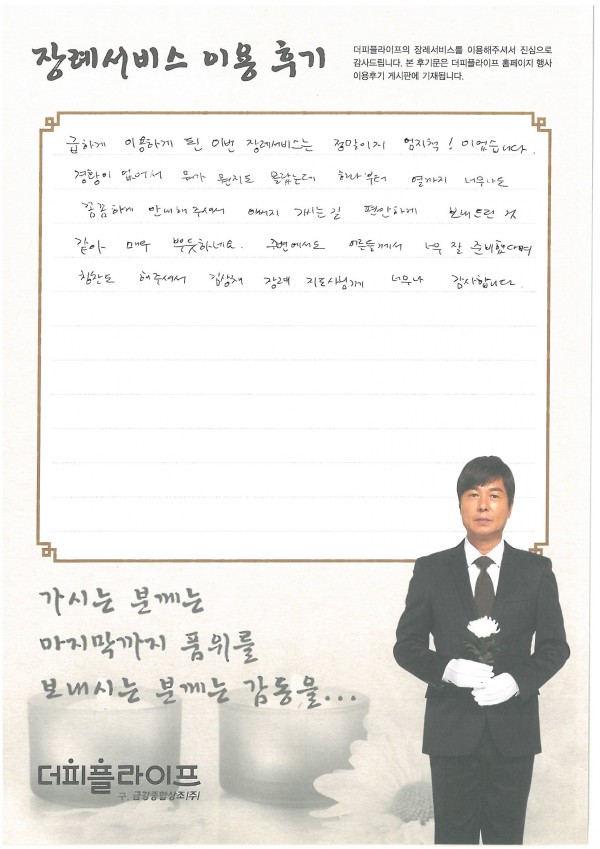 장례서비스 이용 후기
더피플라이프의 장례서비스를 이용해주셔서 진심으로
감사드립니다. 본 후기문은 더피플라이프 홈페이지 행사
이용후기 게시판에 기재됩니다.
급하게 이용하게 된 이번 장례서비스는 정말이지 엄지척! 이었습니다.
경황이 없어서 뭐가 뭔지도 몰랐는데 하나부터 열까지 너무나도
꼼꼼하게 안내해 주셔서 아버지 가시는 길 편안하게 보내드린 것
같아 매우 뿌듯하네요. 주변에서도 어른들께서 너무 잘 준비했다며
칭찬도 해주셔서 장례 지도사님께 너무나 감사합니다.
가시는 분께는
마지막까지 품위를
보내시는 분께는 감동을...
더피플라이프
구. 금강종합상조(주)